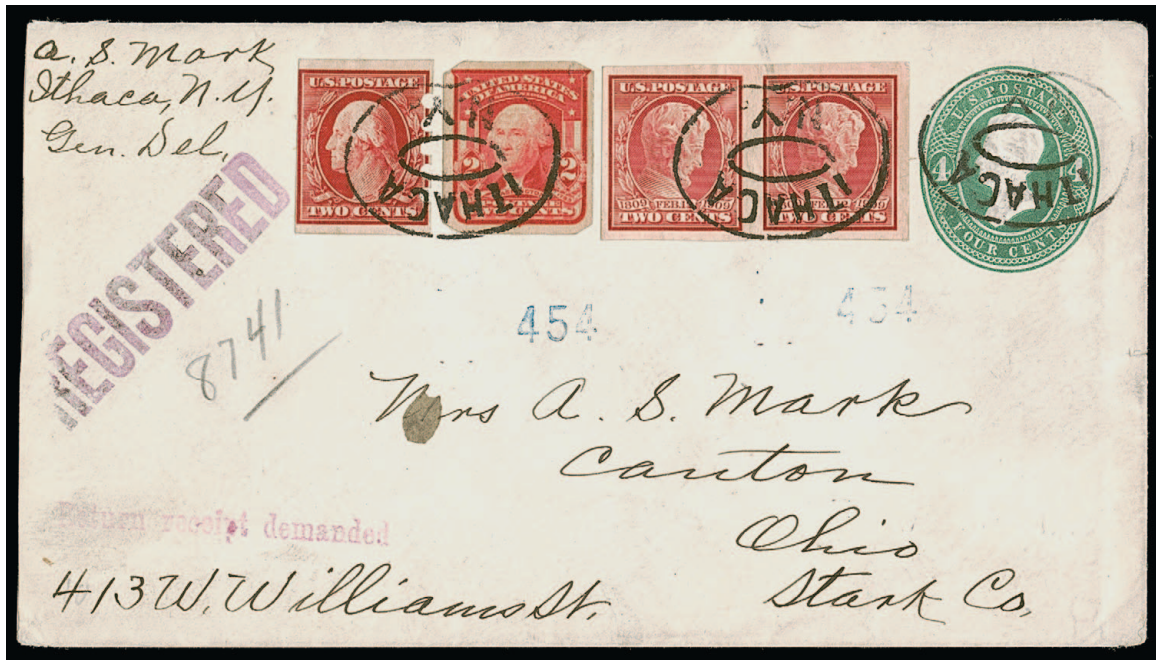 a. S. Mark
Ithaca, N.Y.
Gen. Del.
REGISTERED
8741
U.S. POSTAGE
TWO CENTS
UNITED STATES
OF AMERICA
2 2
CENTS
U.S. POSTAGE
1809 FEB. 12 1909
TWO CENTS
U.S. POSTAGE
FEB. 12 1909
TWO CENTS
U.S. POSTAGE
4 4
FOUR CENTS
ITHACA
N.Y.
ITHACA
N.Y.
ITHACA
454
454
Mrs A. S. Mark
Canton
Ohio
Stark Co.
Return receipt demanded
413 W. Williams St.